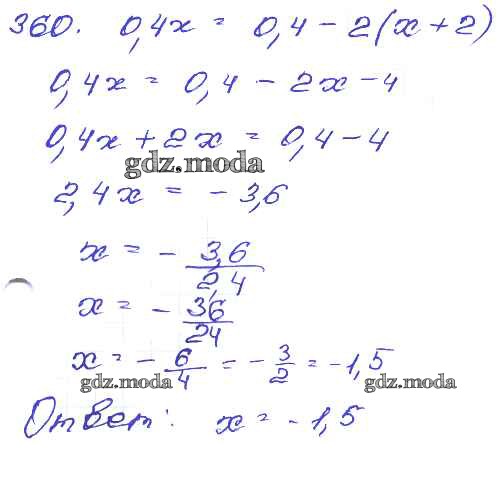 360. 0,4x = 0,4 - 2(x+2)
0,4x = 0,4 - 2x - 4
0,4x + 2x = 0,4 - 4
gdz.moda
2,4x = - 3,6
x = - 3,6/2,4
x = - 36/24
x = - 6/4 = - 3/2 = -1,5
gdz.moda gdz.moda
Ответ: x = - 1,5